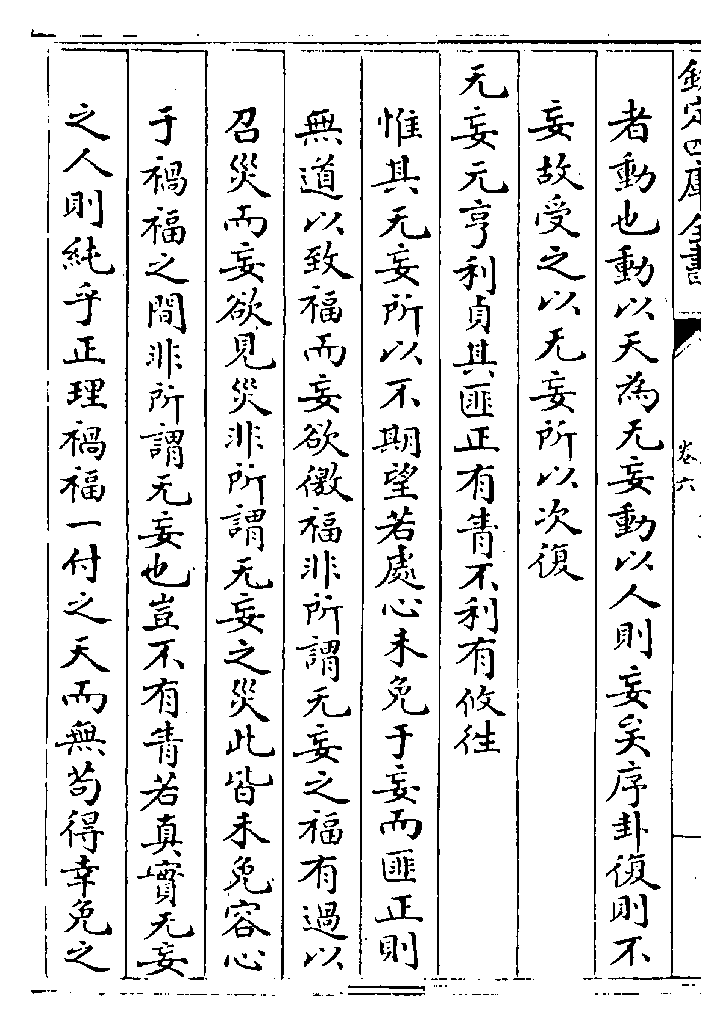 欽定四庫全書
卷六
者動也動以天為无妄動以人則妄矣序卦復則不
妄故受之以无妄所以次復
无妄元亨利貞其匪正有眚不利有攸往
惟其无妄所以不期望若處心未免于妄而匪正則
無道以致福而妄欲徼福非所謂无妄之福有過以
召災而妄欲見災非所謂无妄之災此皆未免容心
于禍福之間非所謂无妄也豈不有眚若真實无妄
之人則純乎正理禍福一付之天而無苟得幸免之